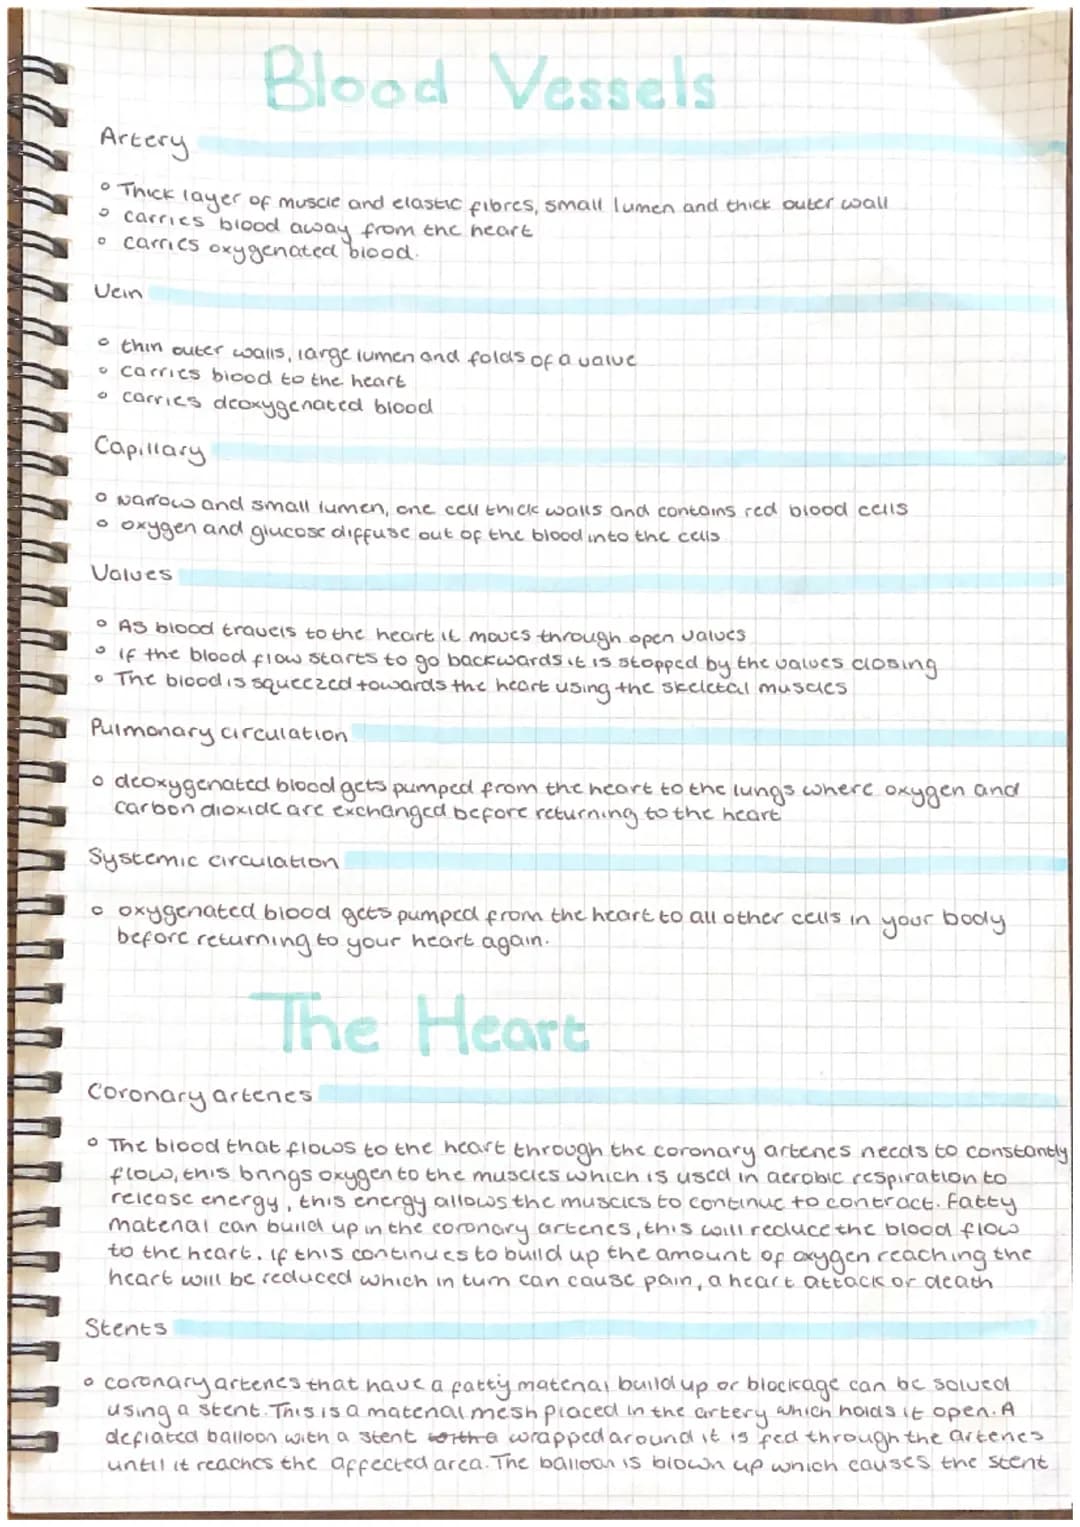 Blood Vessels
Artery
° Thick layer of muscle and elastic fibres, small lumen and thick outer wall
° carries blood away from the heart
° carries oxygenated blood.
Vein
° thin outer walls, large lumen and folds of a valve
° carries blood to the heart
° carries deoxygenated blood
Capillary
° narrow and small lumen, one cell thick walls and contains red blood cells
° oxygen and glucose diffuse out of the blood into the cells
Valves
° As blood travels to the heart it moves through open valves
° if the blood flow starts to go backwards it is stopped by the valves closing
° The blood is squeezed towards the heart using the skeletal muscles
Pulmonary circulation
° deoxygenated blood gets pumped from the heart to the lungs where oxygen and
carbon dioxide are exchanged before returning to the heart
Systemic circulation
° oxygenated blood gets pumped from the heart to all other cells in your body
before returning to your heart again.
The Heart
Coronary arteries
° The blood that flows to the heart through the coronary arteries needs to constantly
flow, this brings oxygen to the muscles which is used in aerobic respiration to
release energy, this energy allows the muscles to continue to contract. Fatty
material can build up in the coronary arteries, this will reduce the blood flow
to the heart. If this continues to build up the amount of oxygen reaching the
heart will be reduced which in turn can cause pain, a heart attack or death
Stents
° coronary arteries that have a fatty material build up or blockage can be solved
using a stent. This is a material mesh placed in the artery which holds it open. A
deflated balloon with a stent with a wrapped around it is fed through the arteries
until it reaches the affected area. The balloon is blown up which causes the stent